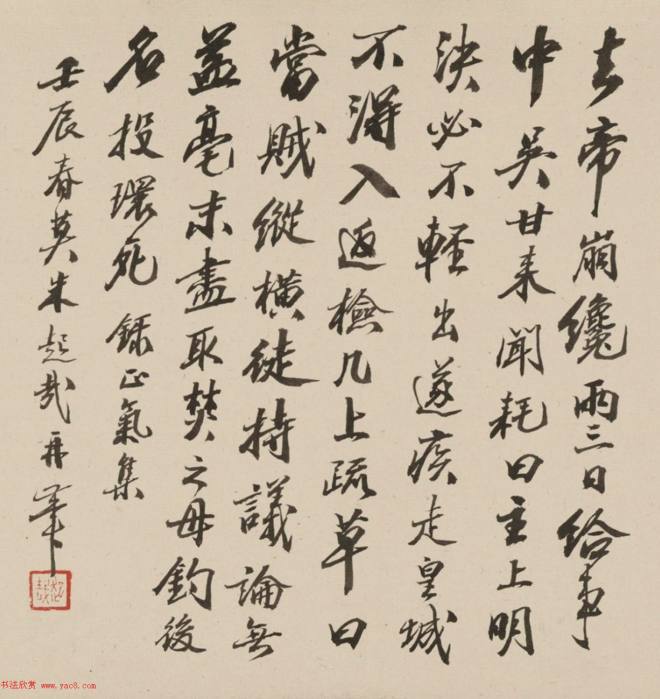 去帝崩纔兩三日給事
中吳甘来聞耗曰主上明
决必不輕出遂疾走皇城
不得入返檢几上疏草曰
當賊縱横徒持議論無
益毫末盡取焚之毋鈞後
名投環死 錄正氣集
壬辰春莫朱起哉再筆
书法欣赏 www.yac8.com